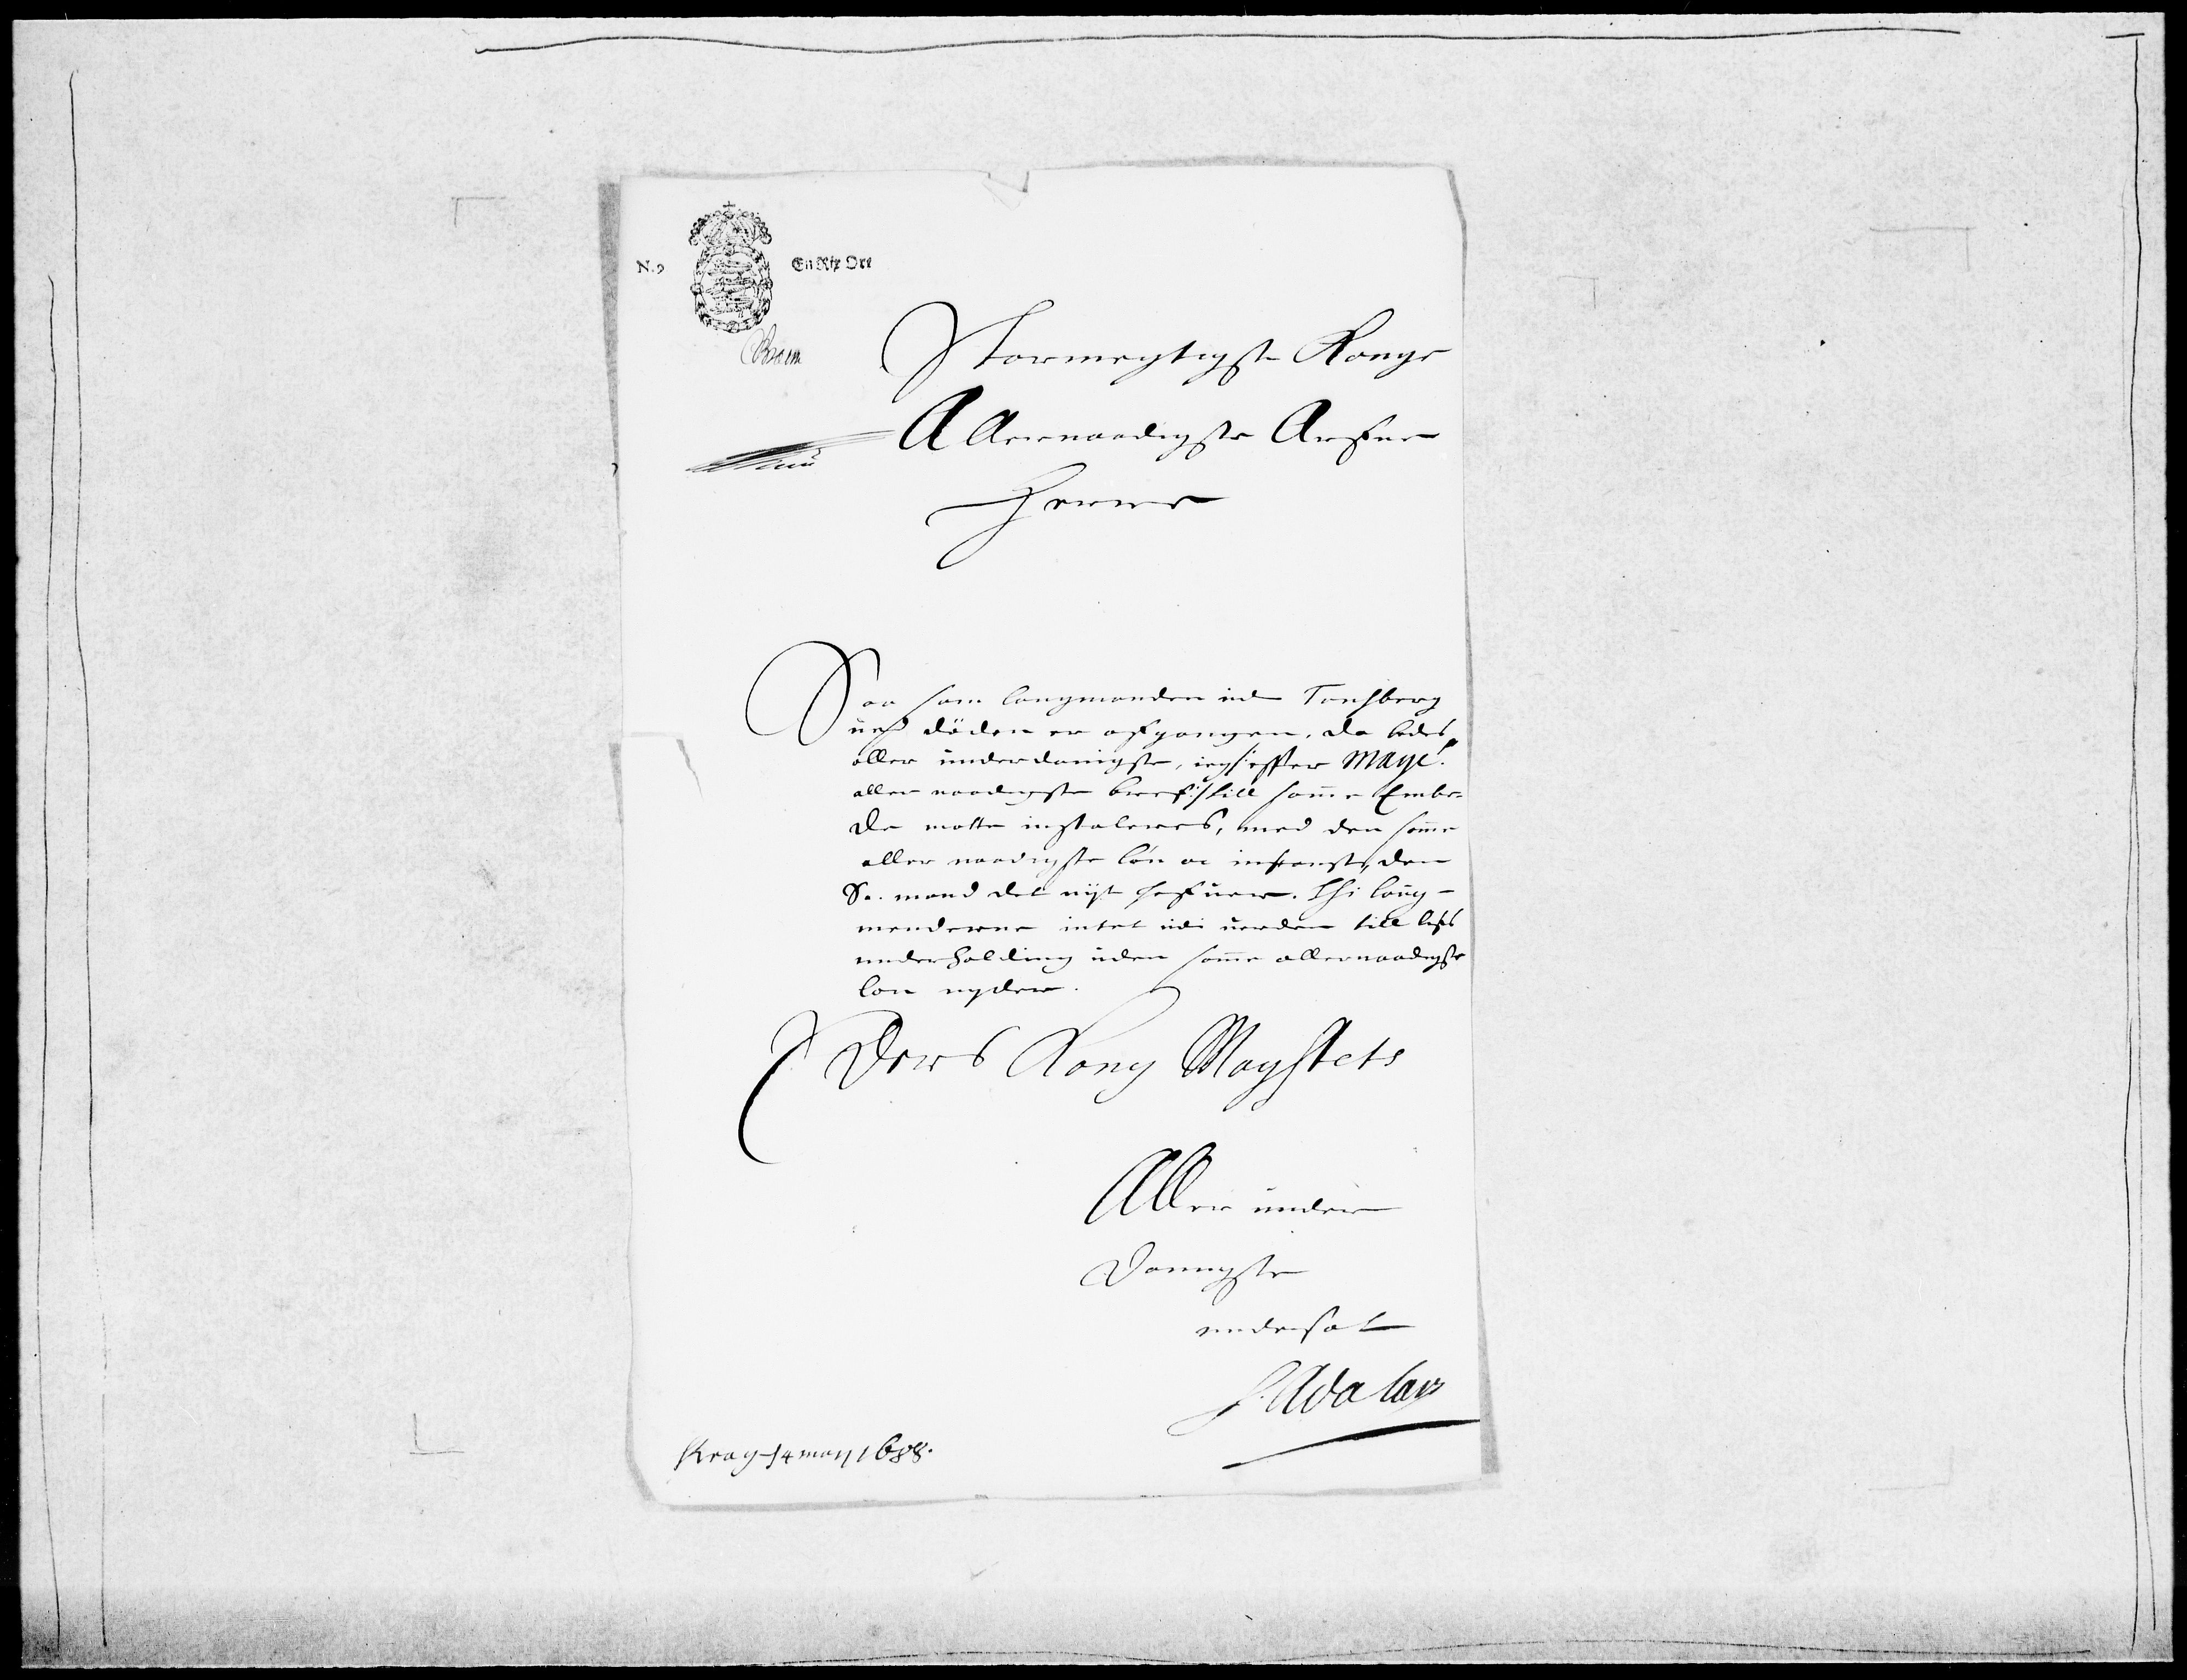 N. 9
En Rix Ort
Braem
Stormegtigste Konge
Allernaadigste Arfue
Herre
Saa som laugmanden udi Tonsberg
ued döden er afgangen, da bedes
aller underdanigste, ieg effter Maye.ts
aller naadigste bref till samme Embe-
de motte instaleres, med den samme
aller naadigste lön oc indkomst, den
S. mand det nyt hafuer. Thi laug-
menderne intet udi uerden till lifs
underholding uden samme allernaadigste
lön nyder.
Ders Kong Maystets
Aller under
Danigste
undersat
F. Adalaer
Krag 14 may 1688.